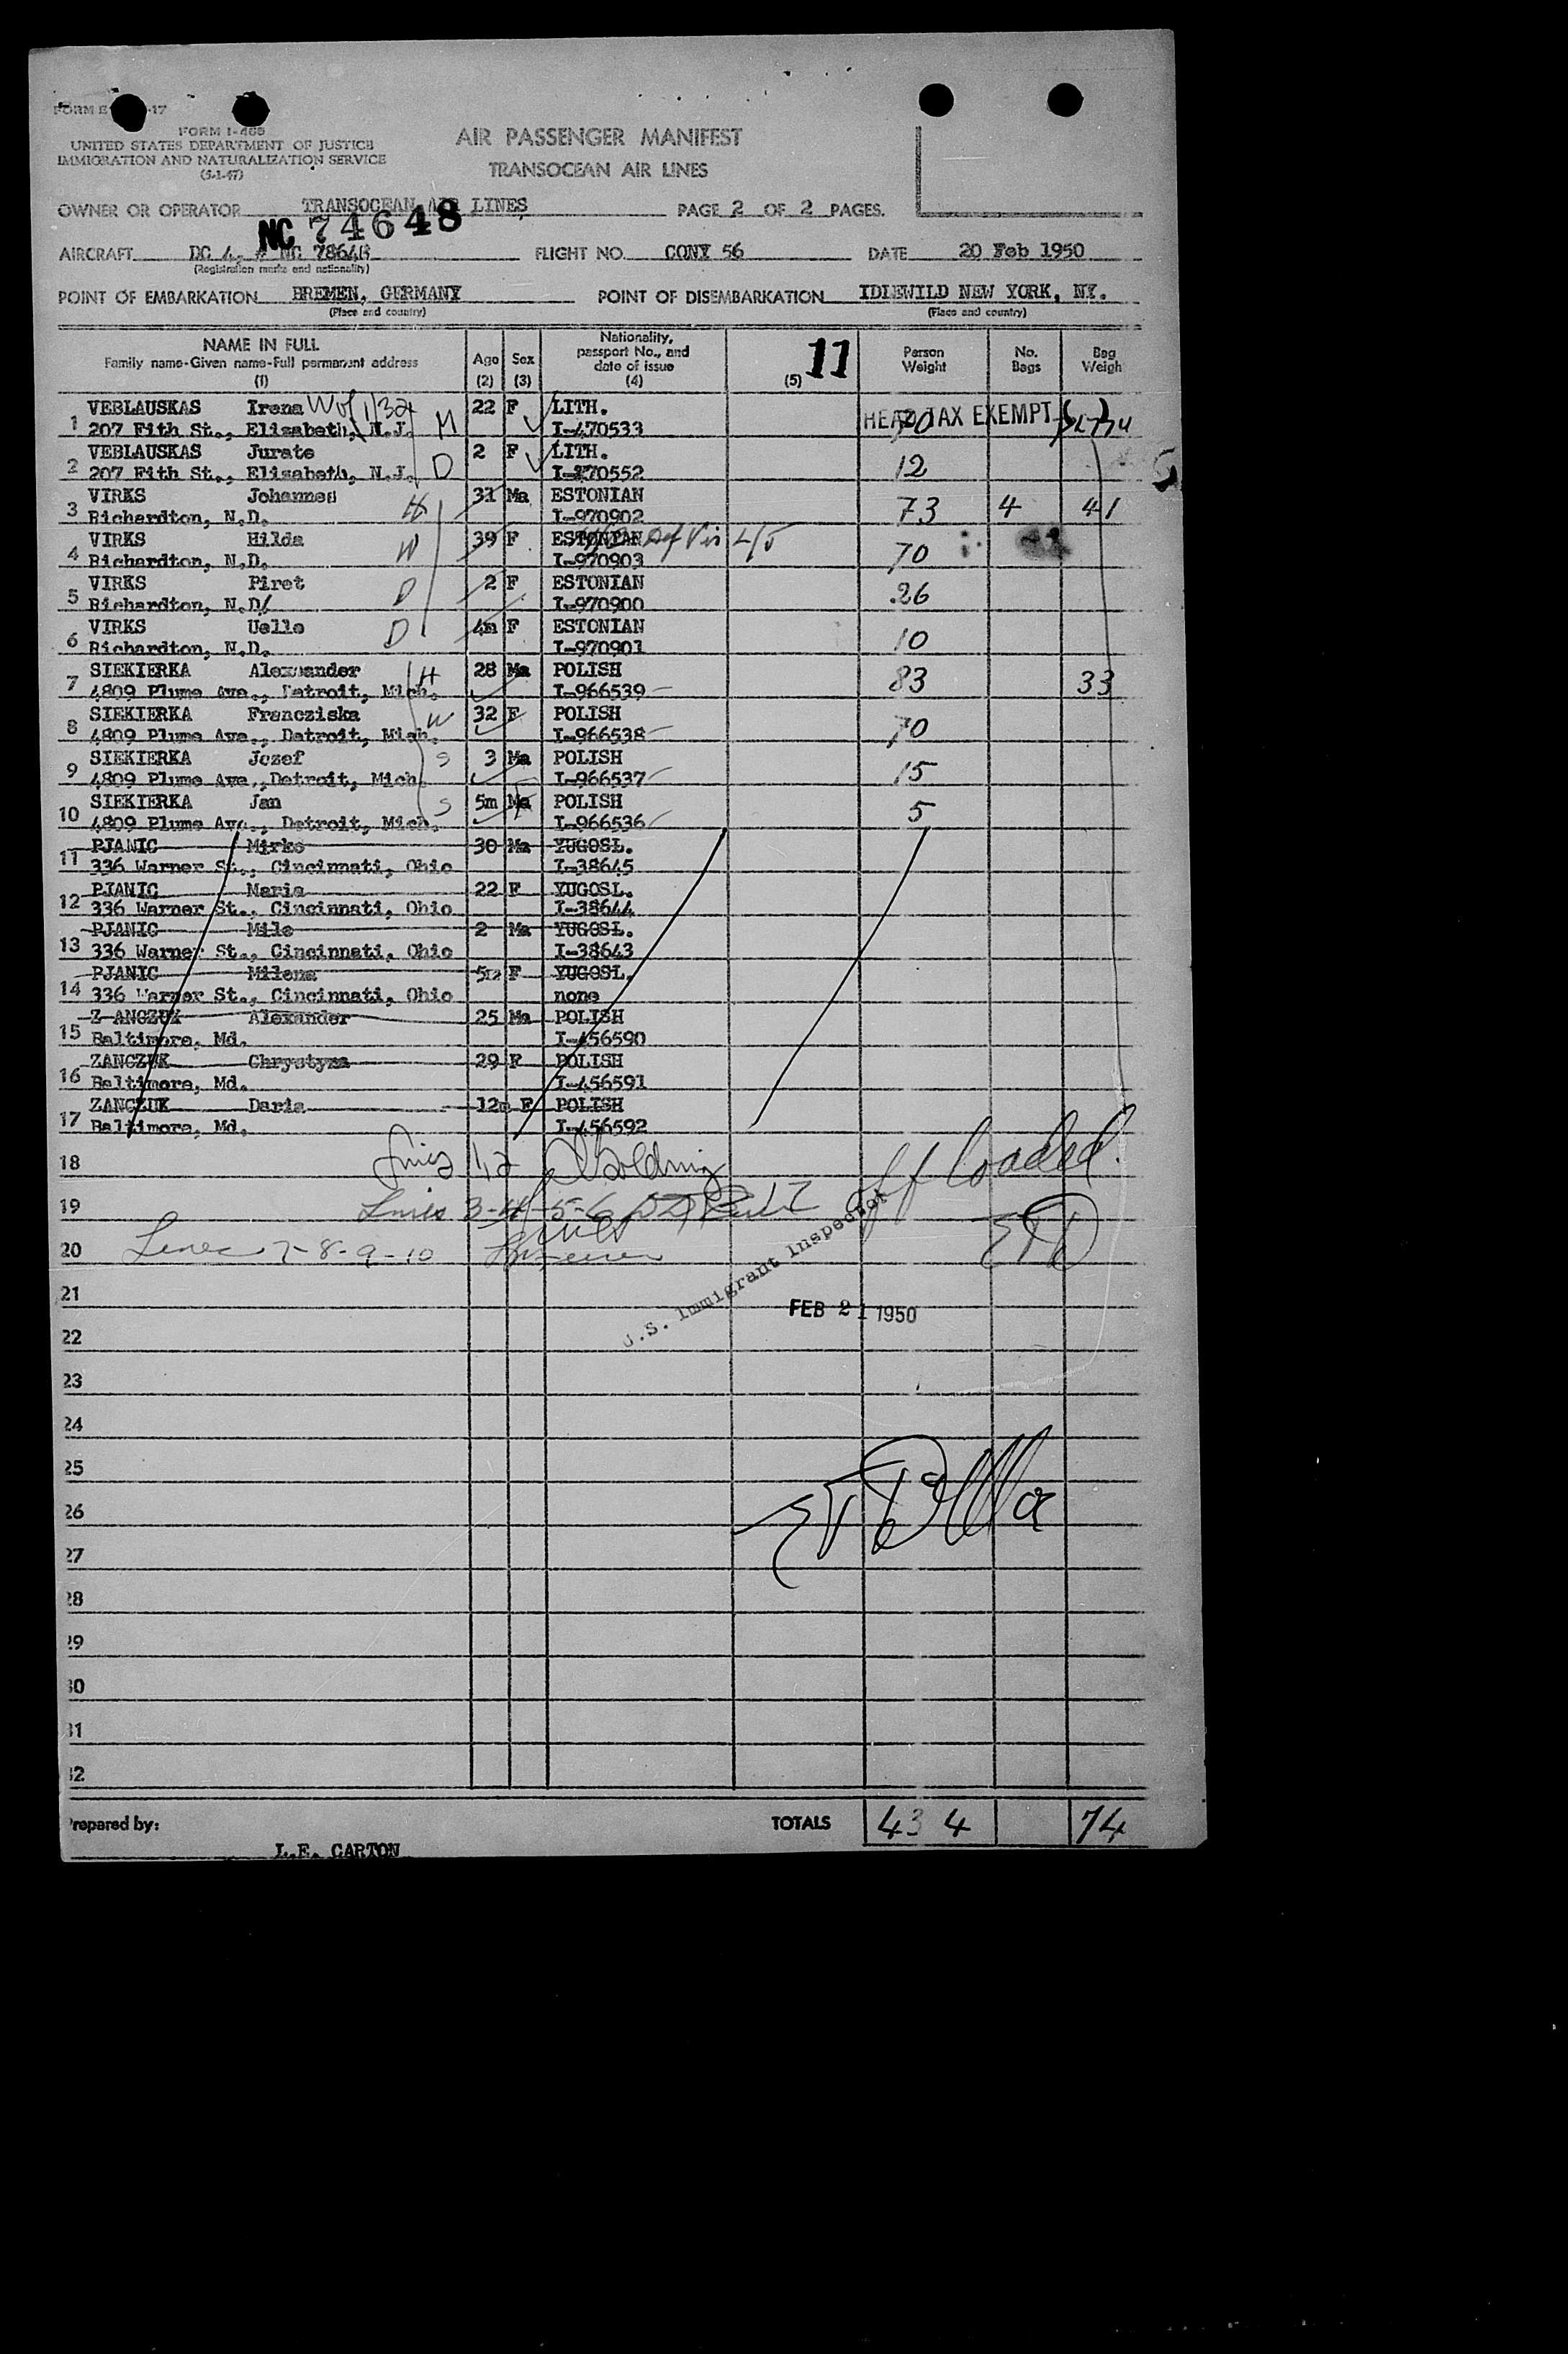 FORM I-466
UNITED STATES DEPARTMENT OF JUSTICE
IMMIGRATION AND NATURALIZATION SERVICE
(5-1-47)
AIR PASSENGER MANIFEST
TRANSOCEAN AIR LINES
OWNER OR OPERATOR TRANSOCEAN AIR LINES PAGE 2 OF 2 PAGES.
NC 74648
AIRCRAFT DC 4, # NC 78648 FLIGHT NO. CONY 56 DATE 20 Feb 1950
(Registration marks and nationality)
POINT OF EMBARKATION BREMEN, GERMANY POINT OF DISEMBARKATION IDLEWILD NEW YORK, NY.
(Place and country) (Place and country)
NAME IN FULL
Family name-Given name-Full permanent address
(1)
Age
(2)
Sex
(3)
Nationality,
passport No., and
date of issue
(4)
(5) 11
Person
Weight
No.
Bags
Bag
Weigh
1 VEBLAUSKAS Irena 22 F LITH.
207 Fith St., Elizabeth, N.J. M I-470533 70 HEAD TAX EXEMPT
2 VEBLAUSKAS Jurate 2 F LITH.
207 Fith St., Elizabeth, N.J. D I-470552 12
3 VIRKS Johannes 31 Ma ESTONIAN
Richardton, N.D. H I-970902 73 4 41
4 VIRKS Hilda 39 F ESTONIAN
Richardton, N.D. W I-970903 70
5 VIRKS Piret 2 F ESTONIAN
Richardton, N.D/ D I-970900 26
6 VIRKS Uelle 4m F ESTONIAN
Richardton, N.D. D I-970901 10
7 SIEKIERKA Alexander 28 Ma POLISH
4809 Plume Ave., Detroit, Mich. H I-966539 83 33
8 SIEKIERKA Francziska 32 F POLISH
4809 Plume Ave., Detroit, Mich. W I-966538 70
9 SIEKIERKA Jozef 3 Ma POLISH
4809 Plume Ave., Detroit, Mich. S I-966537 15
10 SIEKIERKA Jan 5m Ma POLISH
4809 Plume Ave., Detroit, Mich. S I-966536 5
11 PJANIC Mirko 30 Ma YUGOSL.
336 Warner St., Cincinnati, Ohio I-38645
12 PJANIC Maria 22 F YUGOSL.
336 Warner St., Cincinnati, Ohio I-38644
13 PJANIC Mile 2 Ma YUGOSL.
336 Warner St., Cincinnati, Ohio I-38643
14 PJANIC Milena 5m F YUGOSL.
336 Warner St., Cincinnati, Ohio none
15 Z ANCZUK Alexander 25 Ma POLISH
Baltimore, Md. I-456590
16 ZANCZUK Chrystyna 29 F POLISH
Baltimore, Md. I-456591
17 ZANCZUK Daria 12m F POLISH
Baltimore, Md. I-456592
18 Lines 1,2 off loaded.
19 Lines 3-4-5-6
20 Lines 7-8-9-10
U.S. Immigrant Inspector
21
FEB 21 1950
22
23
24
25
26
27
28
29
30
31
32
Prepared by: TOTALS 434 74
L.E. CARTON